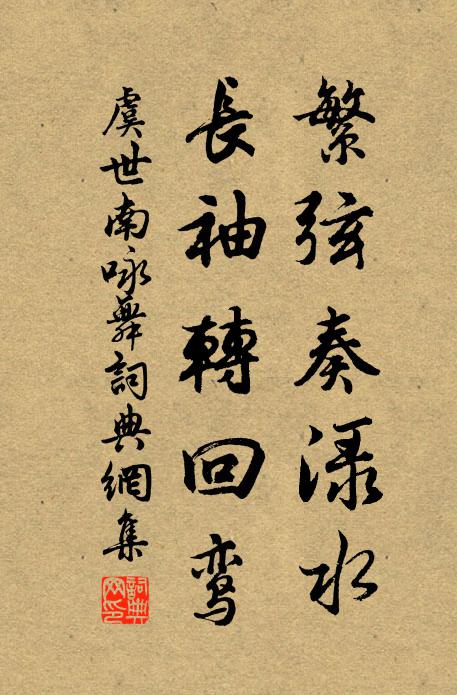 繁弦奏渌水
長袖轉回鸾
虞世南咏舞詞典網集
詞典网印